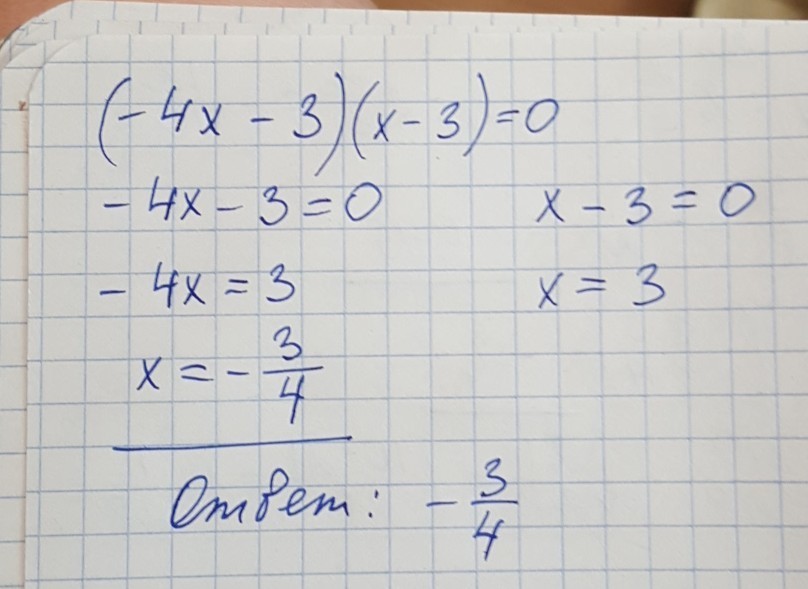 (-4x - 3)(x - 3) = 0
-4x - 3 = 0    x - 3 = 0
-4x = 3    x = 3
x = -3/4
Ответ: -3/4